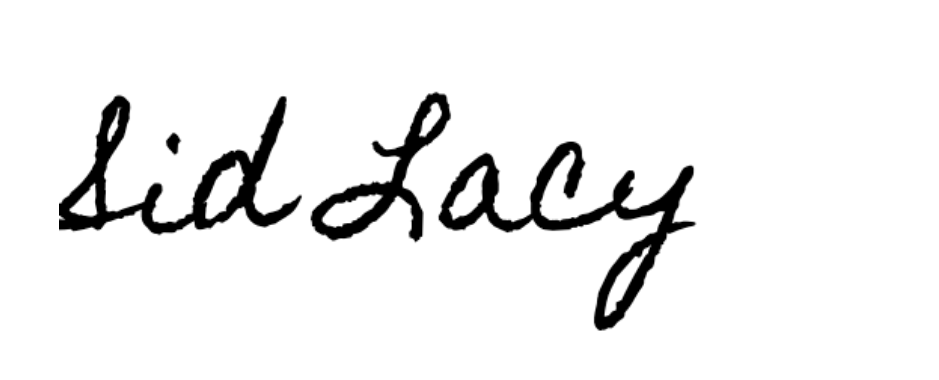 Sid Lacy